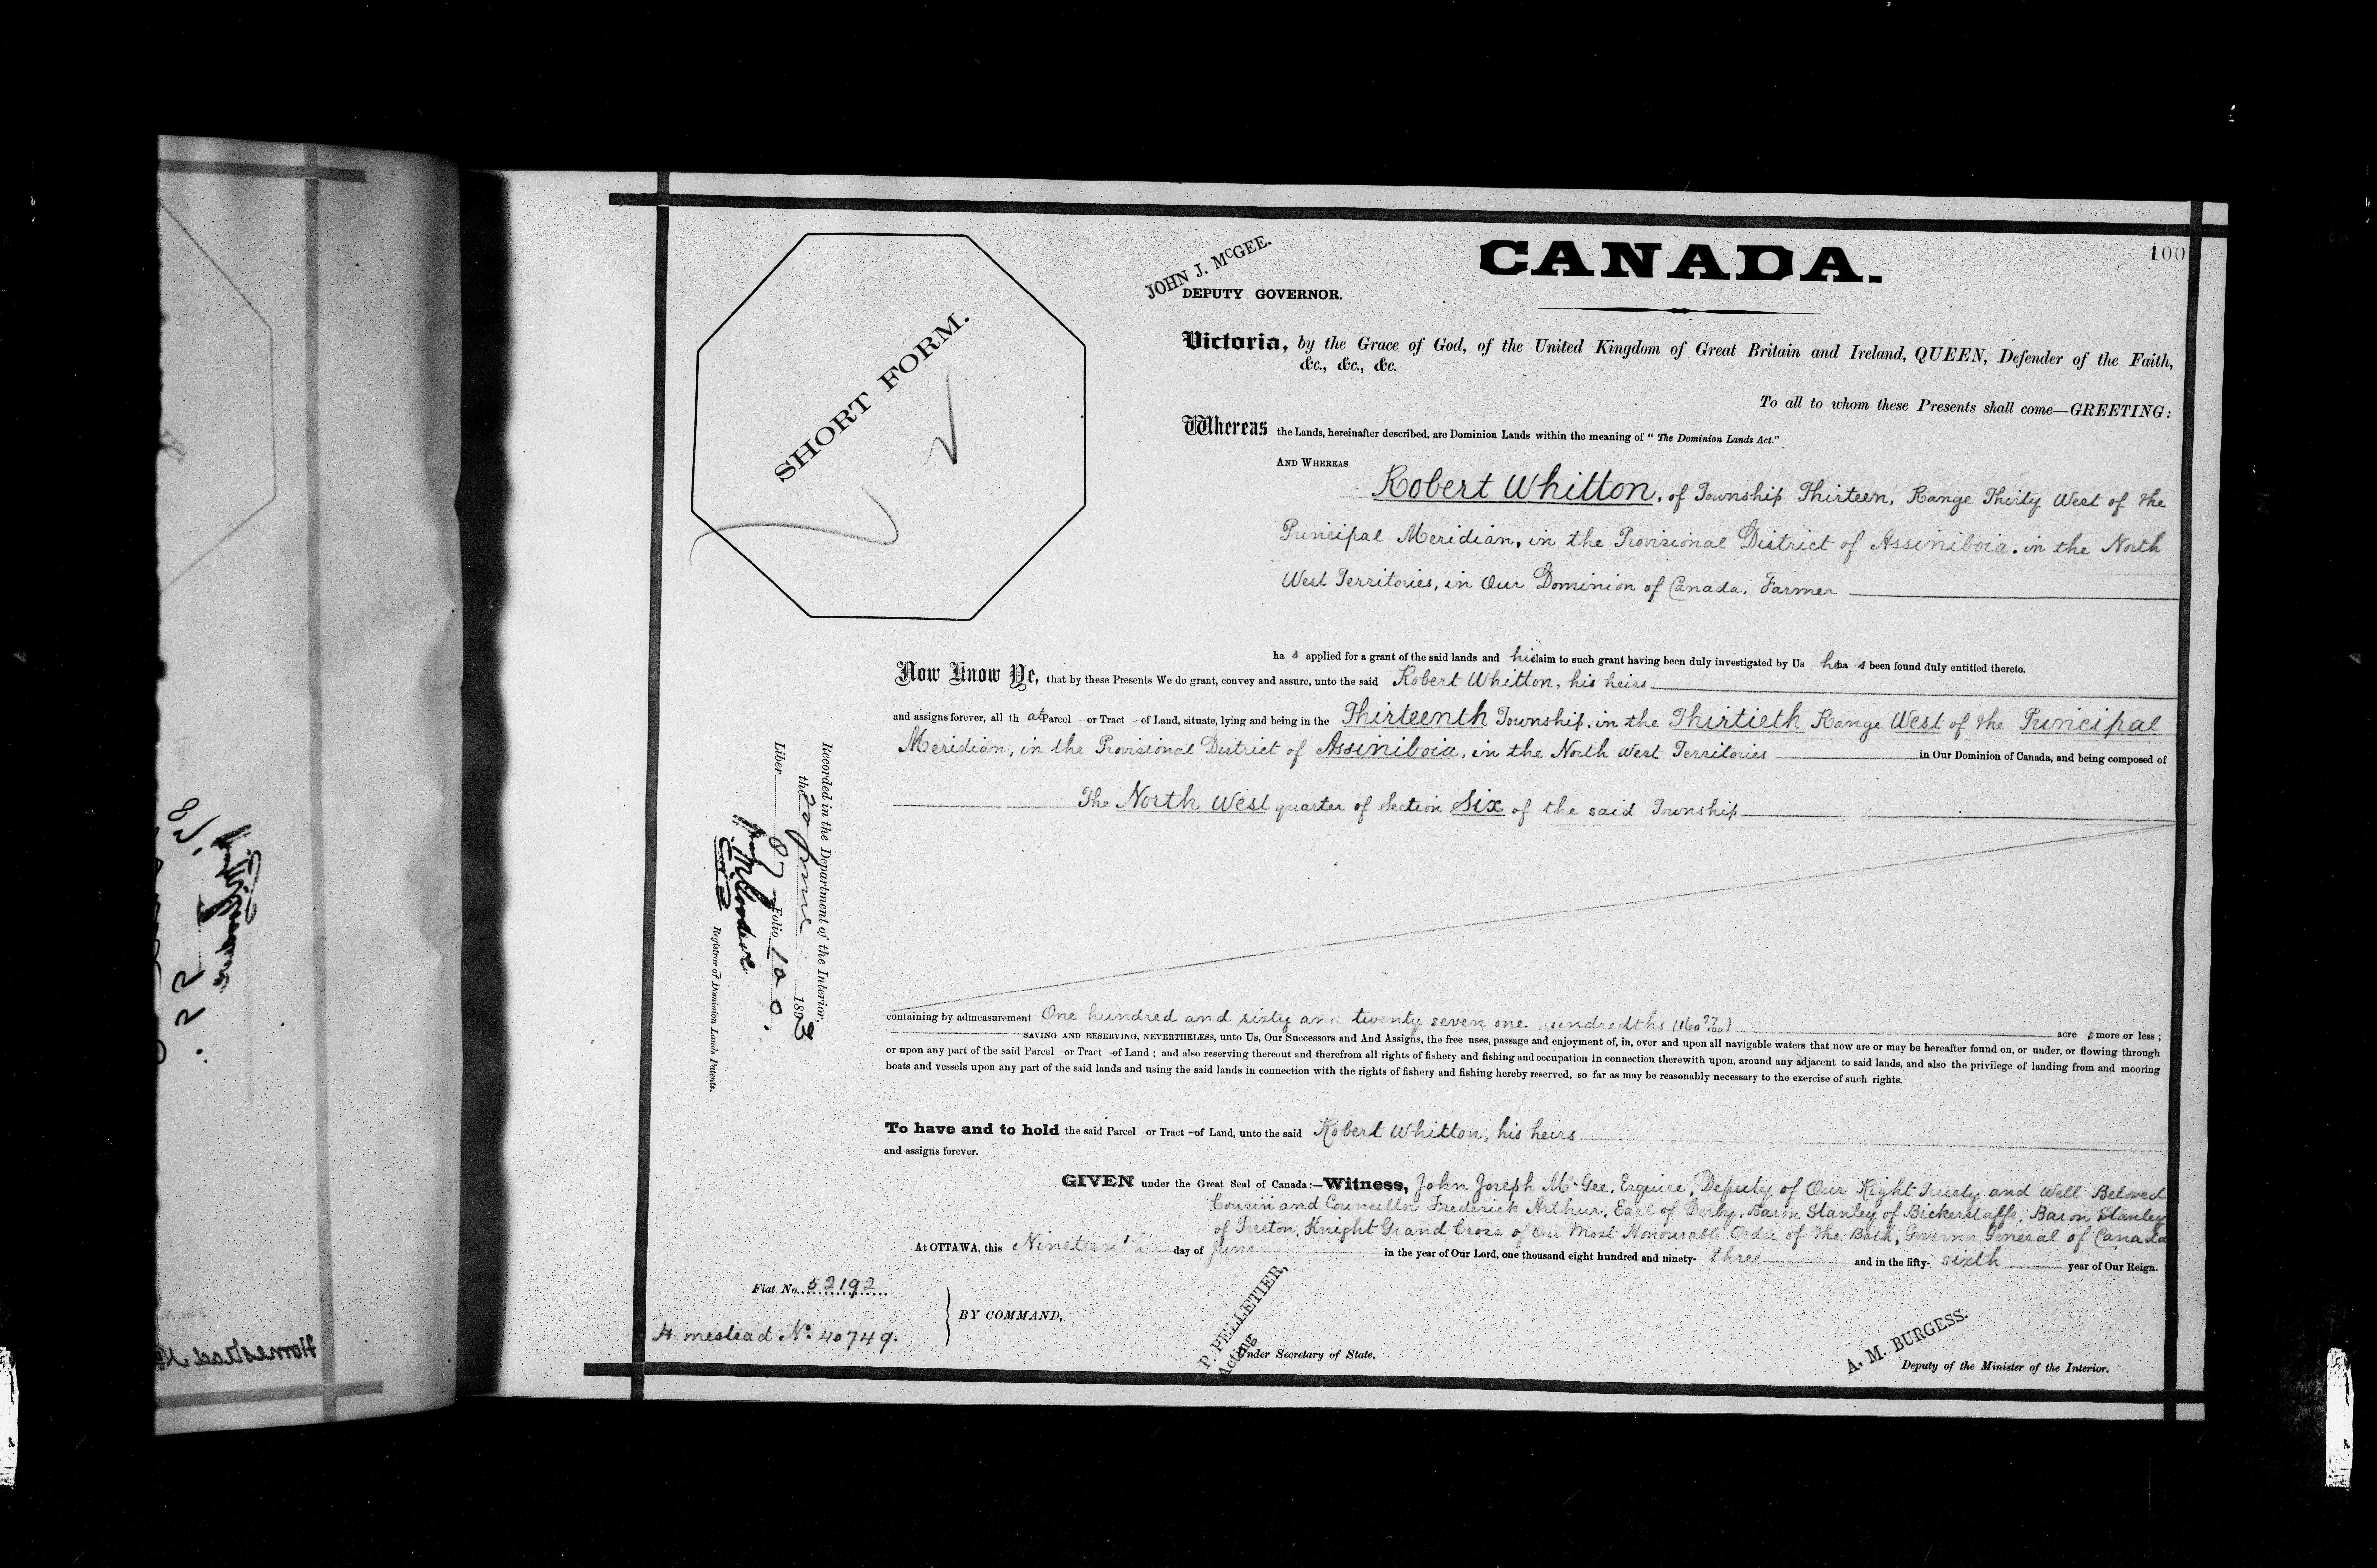 100
CANADA.
JOHN J. McGEE.
DEPUTY GOVERNOR.
SHORT FORM.
Victoria, by the Grace of God, of the United Kingdom of Great Britain and Ireland, QUEEN, Defender of the Faith,
&c., &c., &c.
To all to whom these Presents shall come—GREETING:
Whereas the Lands, hereinafter described, are Dominion Lands within the meaning of "The Dominion Lands Act."
AND WHEREAS
Robert Whitton, of Township Thirteen, Range Thirty West of the
Principal Meridian, in the Provisional District of Assiniboia, in the North
West Territories, in Our Dominion of Canada, Farmer
ha s applied for a grant of the said lands and his claim to such grant having been duly investigated by Us he ha s been found duly entitled thereto.
Now Know Ye, that by these Presents We do grant, convey and assure, unto the said Robert Whitton, his heirs
and assigns forever, all th at Parcel or Tract of Land, situate, lying and being in the Thirteenth Township, in the Thirtieth Range West of the Principal
Meridian, in the Provisional District of Assiniboia, in the North West Territories in Our Dominion of Canada, and being composed of
The North West quarter of Section Six of the said Township
containing by admeasurement One hundred and sixty and twenty seven one hundredths (160 27/100) acre s more or less;
SAVING AND RESERVING, NEVERTHELESS, unto Us, Our Successors and And Assigns, the free uses, passage and enjoyment of, in, over and upon all navigable waters that now are or may be hereafter found on, or under, or flowing through
or upon any part of the said Parcel or Tract of Land; and also reserving thereout and therefrom all rights of fishery and fishing and occupation in connection therewith upon, around any adjacent to said lands, and also the privilege of landing from and mooring
boats and vessels upon any part of the said lands and using the said lands in connection with the rights of fishery and fishing hereby reserved, so far as may be reasonably necessary to the exercise of such rights.
To have and to hold the said Parcel or Tract of Land, unto the said Robert Whitton, his heirs
and assigns forever.
GIVEN under the Great Seal of Canada:—Witness, John Joseph McGee, Esquire, Deputy of Our Right Trusty and Well Beloved
Cousin and Councillor Frederick Arthur, Earl of Derby, Baron Stanley of Bickerstaffe, Baron Stanley
of Preston, Knight Grand Cross of Our Most Honourable Order of the Bath, Governor General of Canada
At OTTAWA, this Nineteenth day of June in the year of Our Lord, one thousand eight hundred and ninety- three and in the fifty- sixth year of Our Reign.
Fiat No. 52192
Homestead No. 40749.
BY COMMAND,
P. PELLETIER,
Acting
Under Secretary of State.
A. M. BURGESS.
Deputy of the Minister of the Interior.
Recorded in the Department of the Interior,
the 20 June 1893
Liber 87 Folio 100.
Registrar of Dominion Lands Patents.
Homestead No